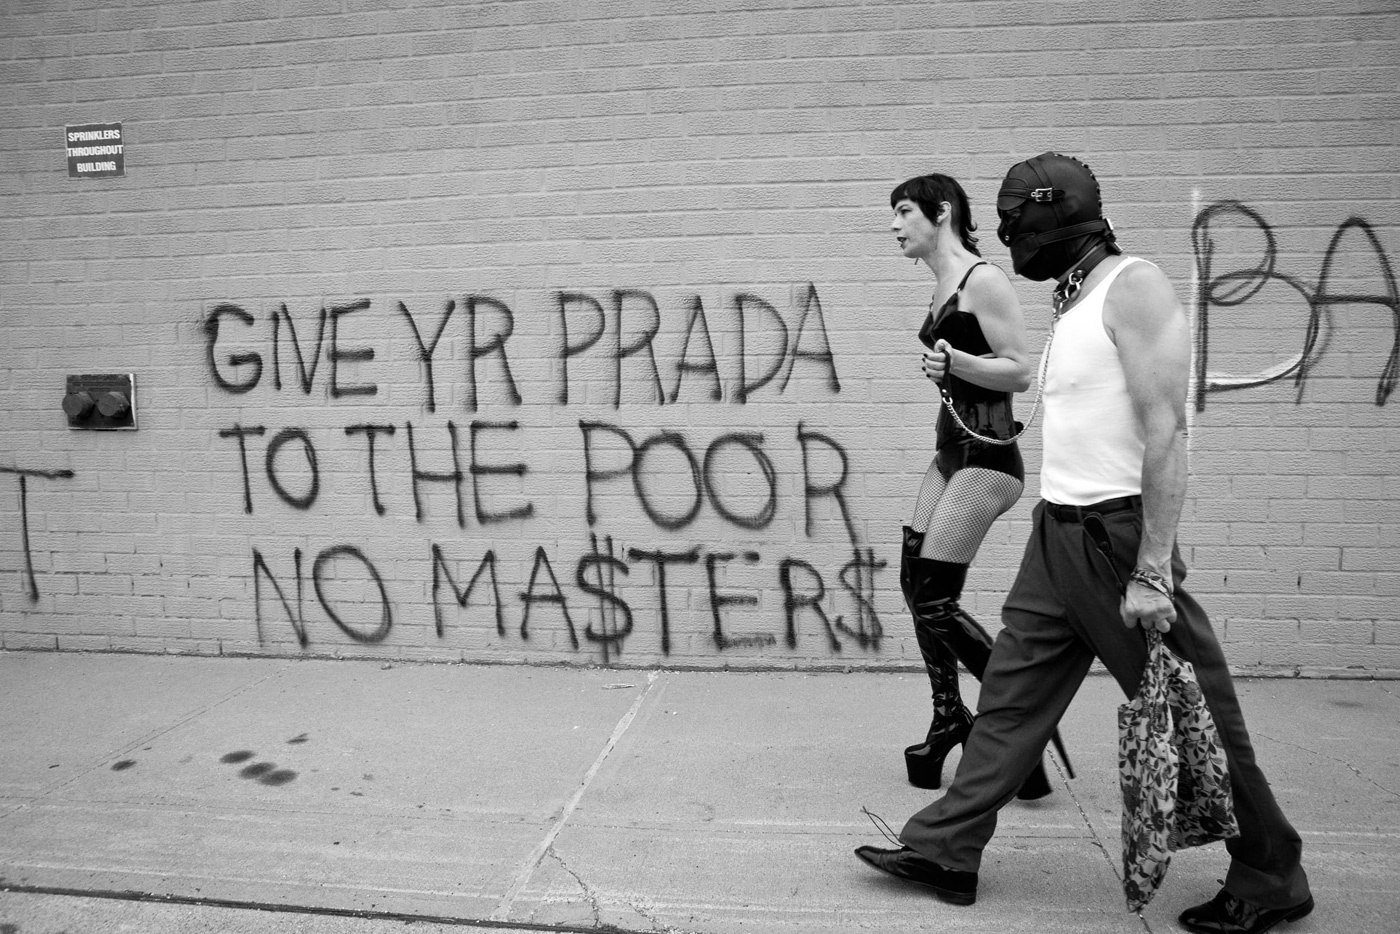 SPRINKLERS
THROUGHOUT
BUILDING
GIVE YR PRADA
TO THE POOR
NO MA$TER$
BA
T